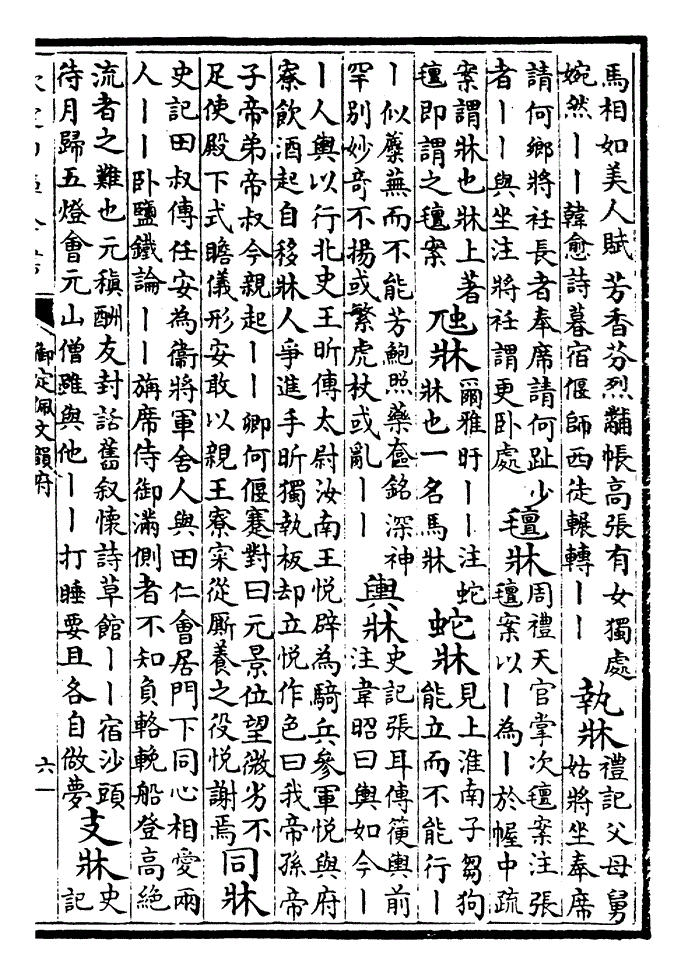 馬相如美人賦芳香芬烈黼帳高張有女獨處
婉然丨丨韓愈詩暮宿偃師西徒輾轉丨丨
執牀
禮記父母舅
姑將坐奉席
請何鄉將衽長者奉席請何趾少
者丨丨與坐注將衽謂更臥處
氊牀
周禮天官掌次氊案注張
氊案以丨為丨於幄中疏
案謂牀也牀上著
氊即謂之氊案
虺牀
爾雅盱丨丨注蛇
牀也一名馬牀
蛇牀
見上淮南子芻狗
能立而不能行丨
丨似蘼蕪而不能芳鮑照藥奩銘深神
罕別妙奇不揚或繁虎杖或亂丨丨
輿牀
史記張耳傳箯輿前
注韋昭曰輿如今丨
丨人輿以行北史王昕傳太尉汝南王悅辟為騎兵參軍悅與府
寮飲酒起自移牀人爭進手昕獨執板却立悅作色曰我帝孫帝
子帝弟帝叔今親起丨丨卿何偃蹇對曰元景位望微劣不
足使殿下式瞻儀形安敢以親王寮寀從厮養之役悅謝焉
同牀
史記田叔傳任安為衛將軍舍人與田仁會居門下同心相愛兩
人丨丨臥鹽鐵論丨丨旃席侍御滿側者不知負輅輓船登高絕
流者之難也元稹酬友封話舊叙懷詩草館丨丨宿沙頭
待月歸五燈會元山僧雖與他丨丨打睡要且各自做夢
支牀
史
記
御定佩文韻府
六一